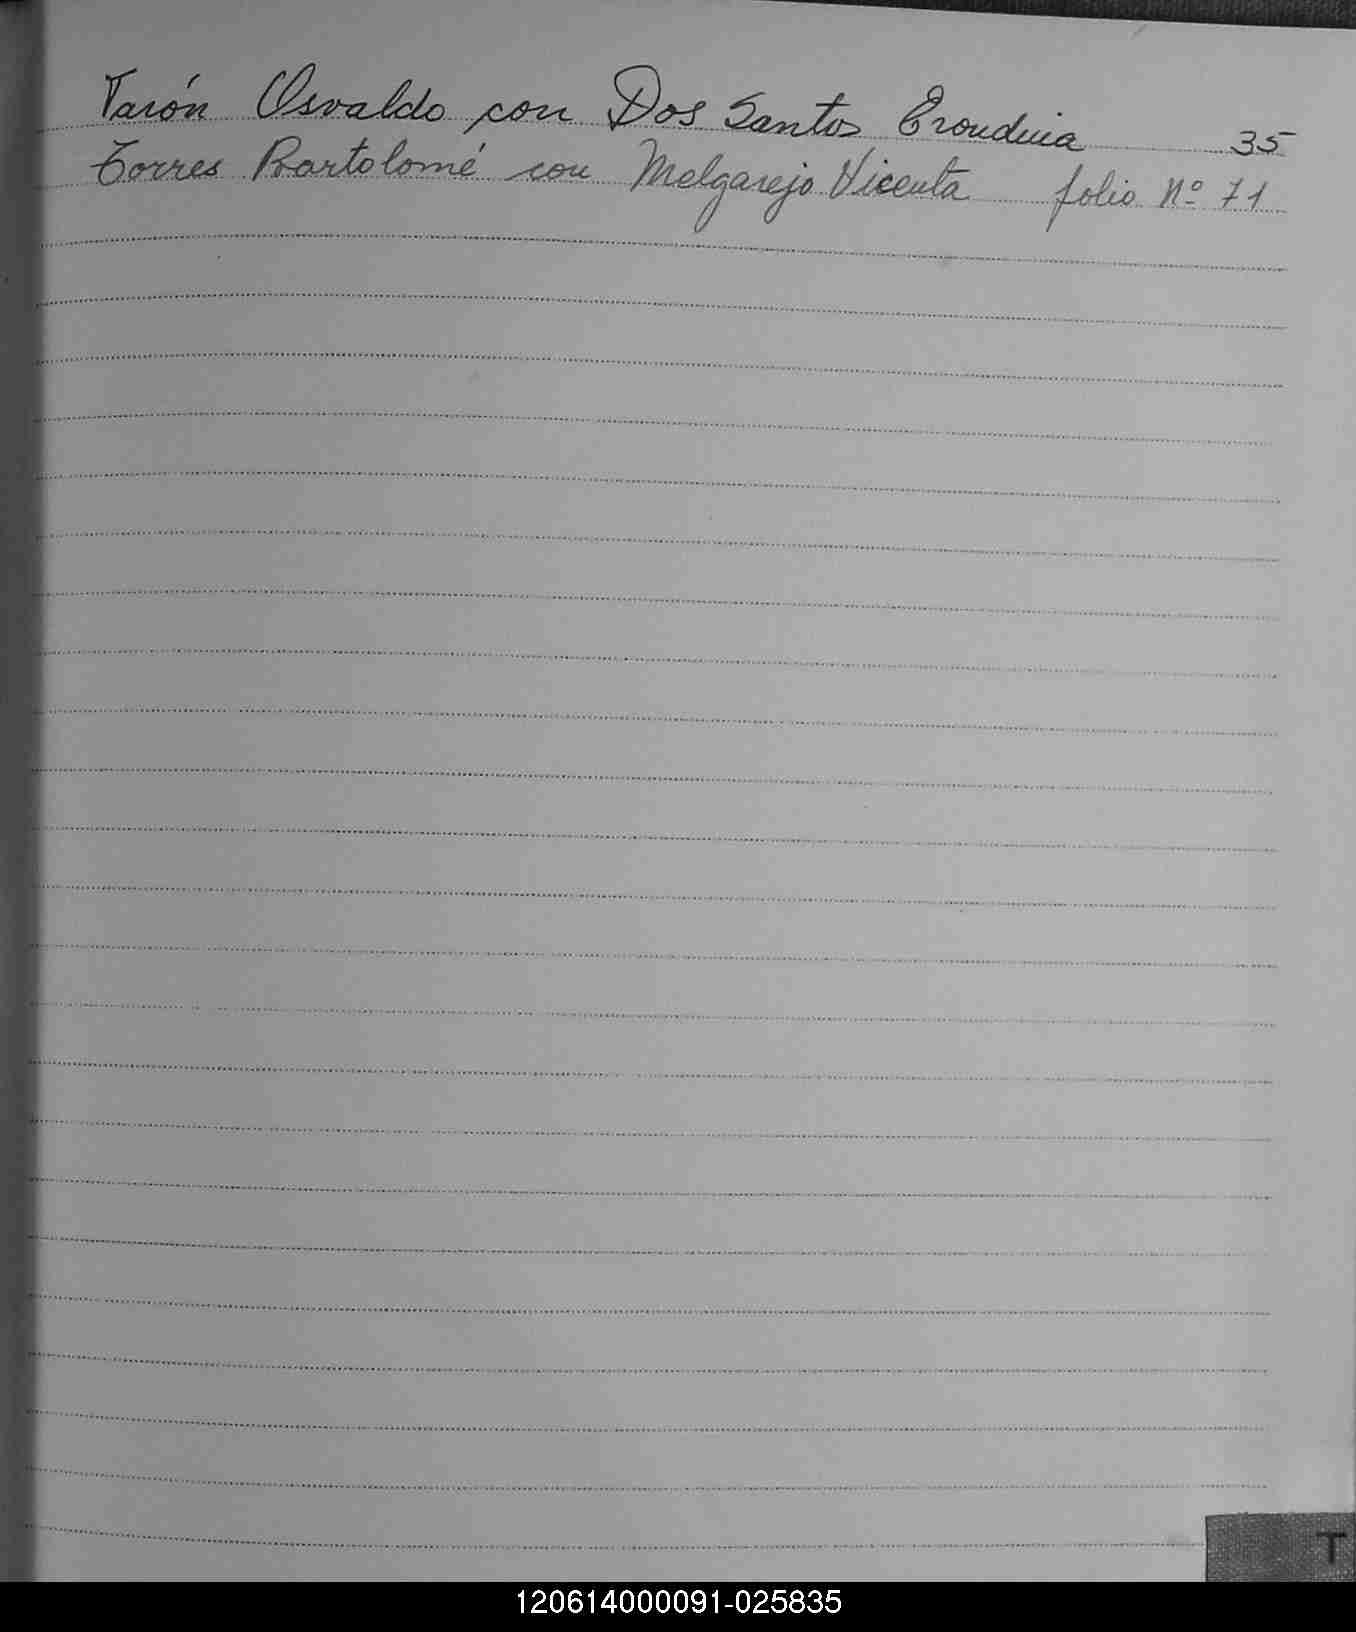 Tarón Osvaldo con Dos Santos Erondina 35
Torres Bartolomé con Melgarejo Vicenta folio Nº 71
T
120614000091-025835